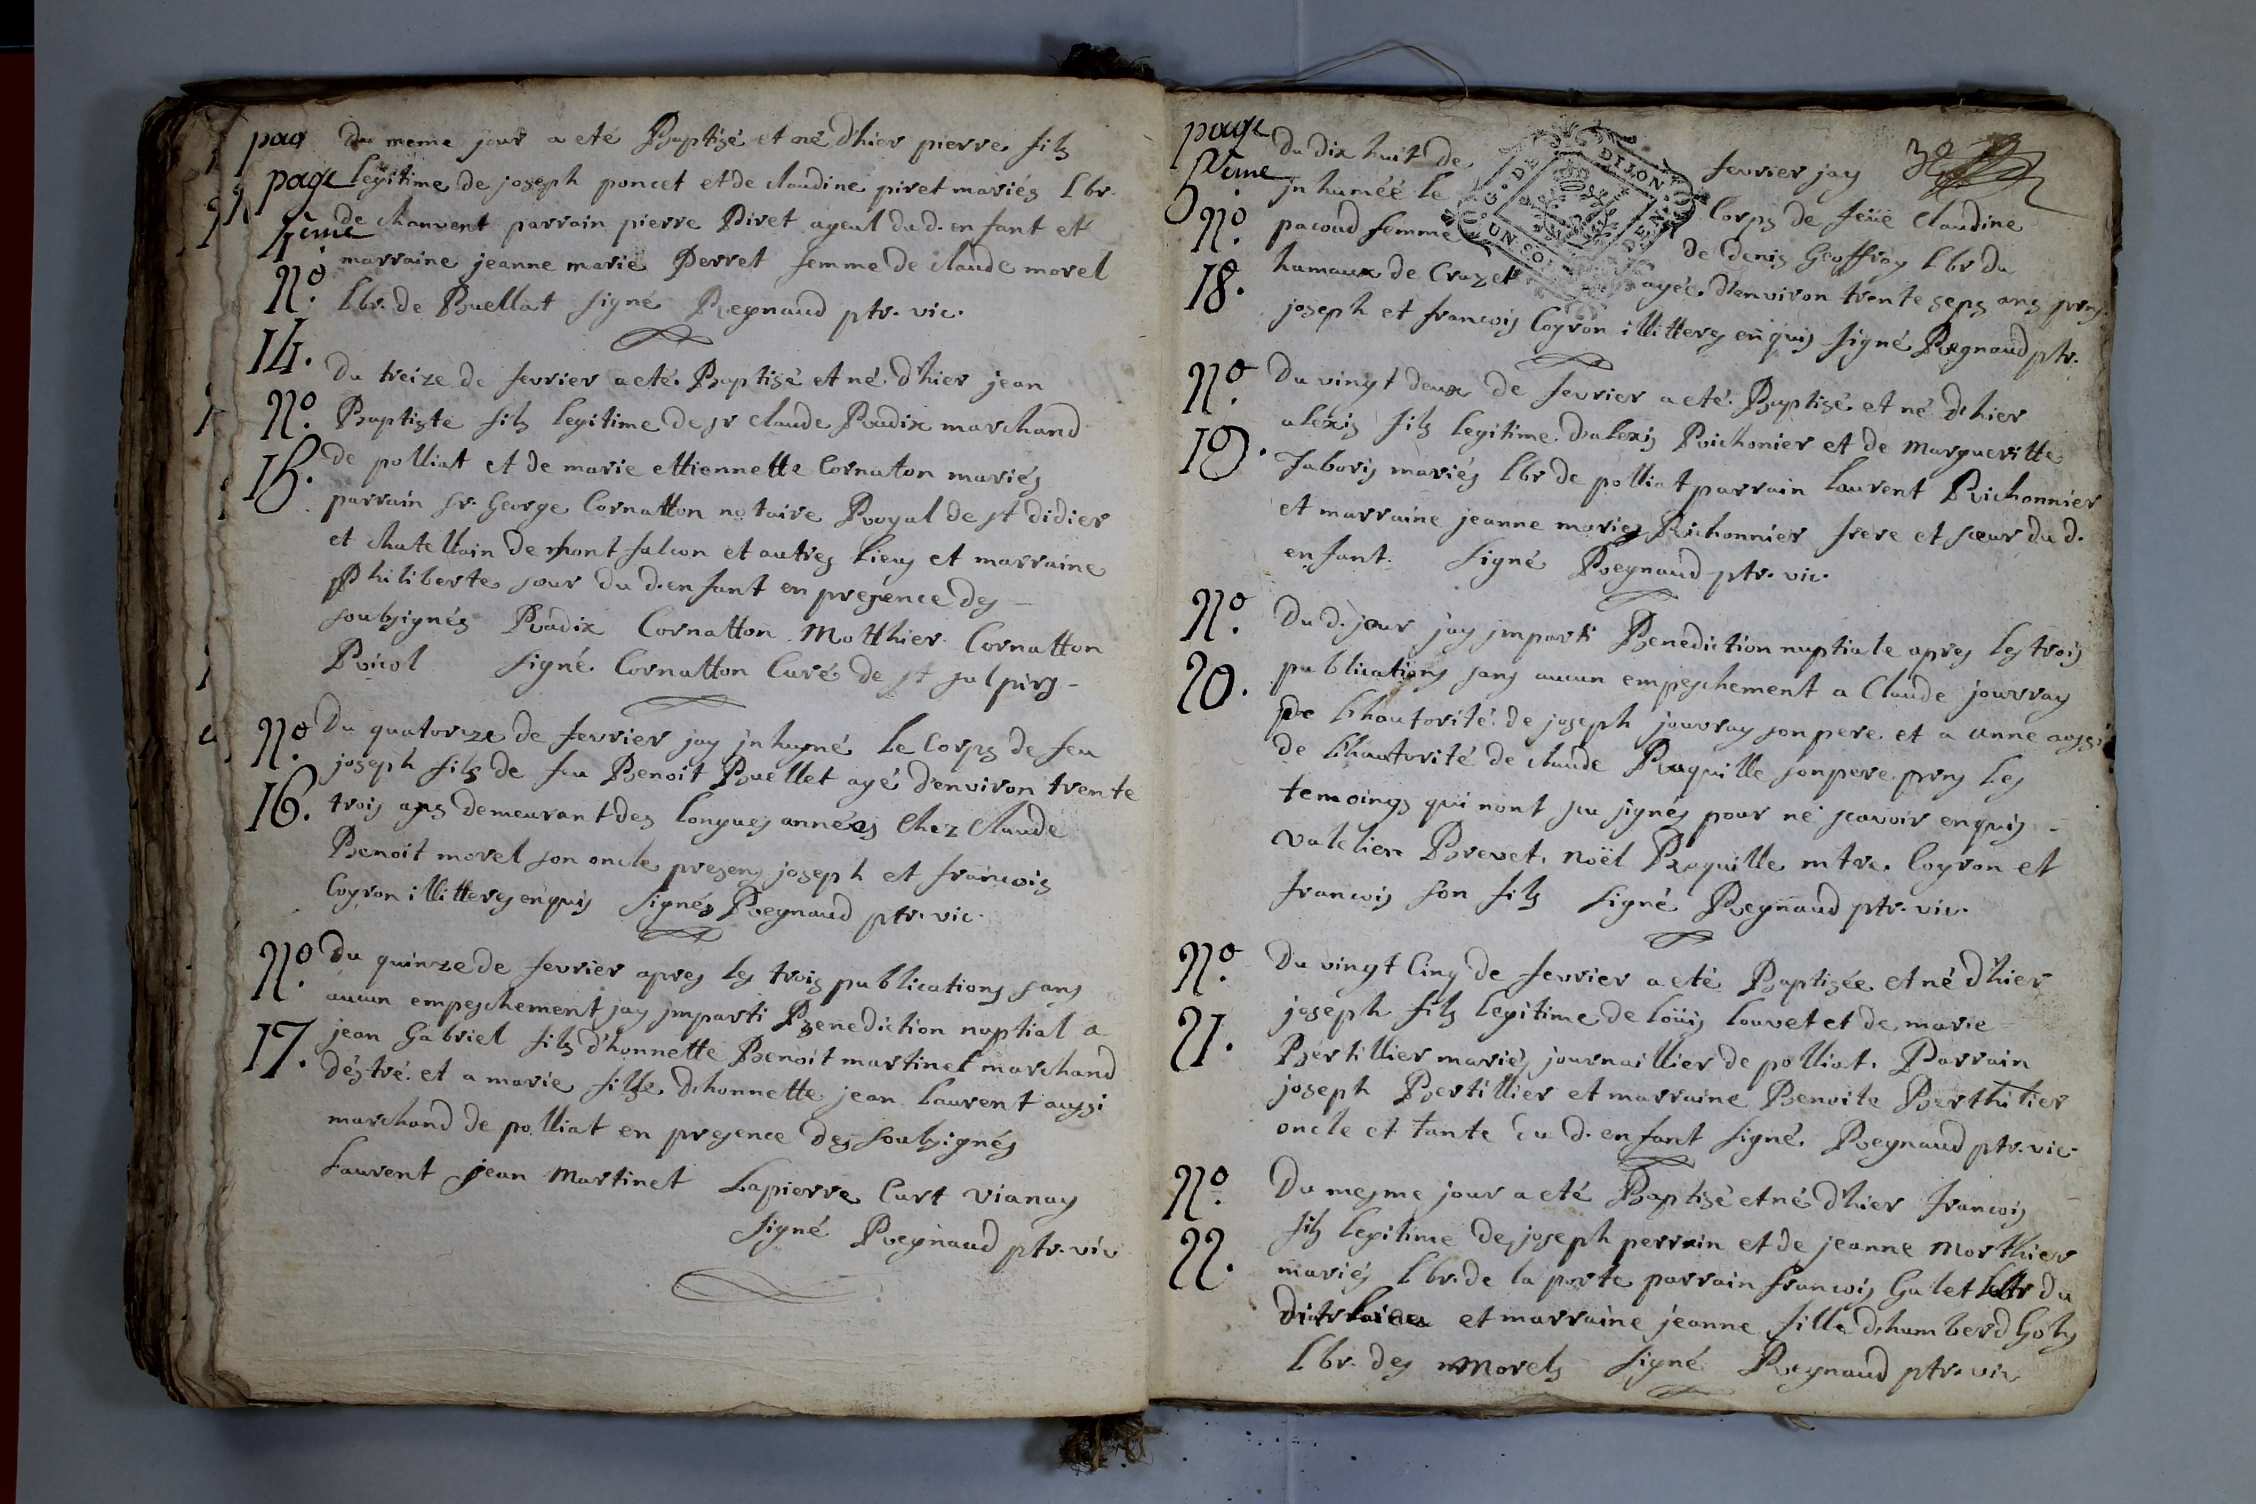 pag
page
4eme
Du meme jour a eté Baptisé et né d'hier pierre fils
legitime de joseph poncet et de claudine piret mariés lbr.
de chanvent parrain pierre Piret ayeul du d. enfant et
marraine jeanne marie Perret femme de claude morel
lbr. de Buellat signé Regnaud ptr. vic.
No. 14.
Du treize de fevrier a eté Baptisé et né d'hier jean
Baptiste fils legitime de sr claude Radix marchand
de polliat et de marie ettiennette Cornaton mariés
parrain sr. George Cornatton notaire Royal de st didier
et chatellain de mont falcon et autres lieus et marraine
Philiberte sour du d. enfant en presence des
soubsignés Radix Cornatton Motthier Cornatton
signé Cornatton Curé de st sulpirs
No. 15.
Du quatorze de fevrier jay jnhumé le Corps de feu
joseph fils de feu Benoit Buellet agé d'environ trente
trois ans demeurant des longues années Chez Claude
Benoit morel son oncle presens joseph et francois
Coyron illitters enquis signés Regnaud ptr. vic.
No. 16.
Du quinze de fevrier apres les trois publications sans
aucun empeschement jay jmparti Benediction nuptial a
jean Gabriel fils d'honnette Benoit martinet marchand
déstré. et a marie fille d'honnette jean laurent aussi
marchand de polliat en presence des soubsignés
Laurent jean Martinet Lapierre Curt Vianay
signé Regnaud ptr. vic
No. 17.
page
5eme
Du dix huit de fevrier jay
jnhumée le Corps de feüe Claudine
pacoud femme de denis Geoffray lbr du
hameaux de Crozet agée d'environ trente seps ans prns
joseph et francois Coyron illitters enquis signé Regnaud ptr.
DIJON
No. 18.
Du vingt deux de fevrier a eté Baptisé et né d'hier
alexis fils legitime d'alexis Richonier et de margueritte
Taboris mariés lbr de polliat parrain laurent Richonnier
et marraine jeanne maries Richonnier frere et sœur du d.
enfant. signé Regnaud ptr. vic.
No. 19.
Du d. jour jay jmparti Benediction nuptiale apres les trois
publications sans aucun empeschement a Claude jouvray
de lhautorité de joseph jouvray son pere et a anne aussi
de lhautorité de claude Raquille son pere. prns les
temoings qui nont scu signés pour ne scavoir enquis
Brevet, Noël Raquille mtre. Coyron et
francois son fils signé Regnaud ptr. vic.
No. 20.
Du vingt Cinq de fevrier a eté Baptisée et né d'hier
joseph fils legitime de loüis louvet et de marie
Bertillier mariés journaillier de polliat. Parrain
joseph Bertillier et marraine Benoite Berthilier
oncle et tante du d. enfant signé. Regnaud ptr. vic.
No. 21.
Du mesme jour a eté Baptisé et né d'hier francois
fils legitime de joseph perrain et de jeanne Morthier
mariés lbr. de la porte parrain francois Galet lbr du
et marraine jeanne fille d'humberd Goly
lbr. des Morels signé Regnaud ptr. vic
No. 22.